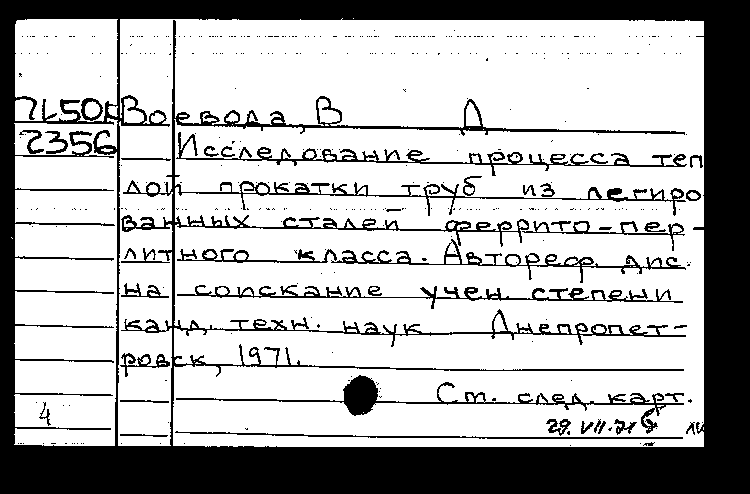 7L50K Воевода, В Д
2356 Исследование процесса теп
лой прокатки труб из легиро
ванных сталей феррито-пер-
литного класса. Автореф. дис.
на соискание учен. степени
канд. техн. наук Днепропет-
ровск, 1971.
Ст. след. карт.
4
29.VII.71